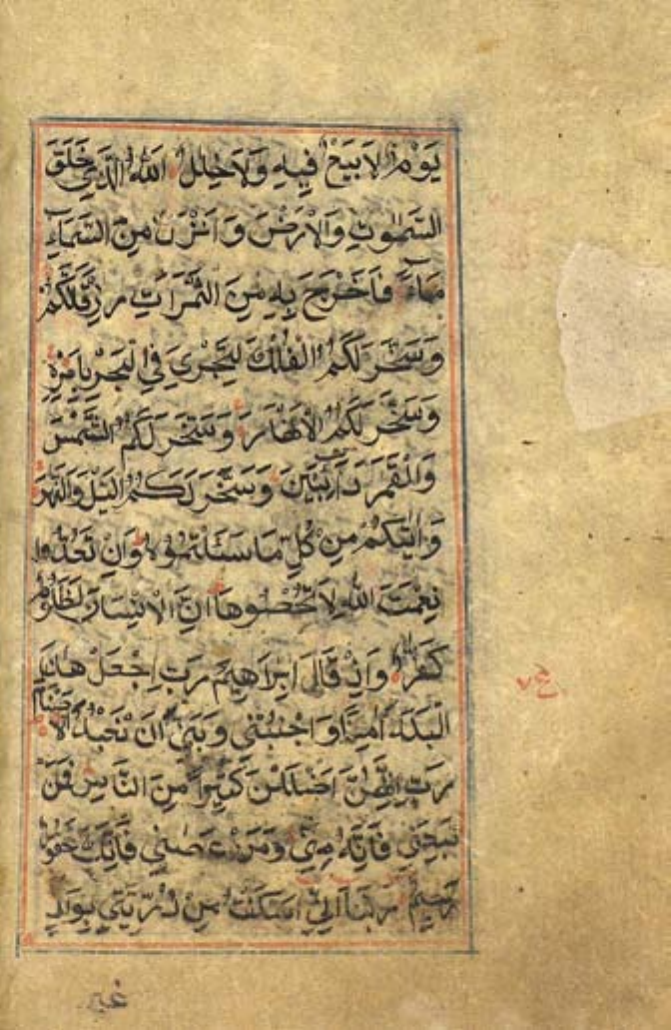 يَوْمٌ لَا بَيْعٌ فِيهِ وَلَا خِلٰلٌ اَللهُ الَّذِي خَلَقَ
السَّمٰوٰتِ وَالْاَرْضَ وَاَنْزَلَ مِنَ السَّمَاۤءِ
مَاۤءً فَاَخْرَجَ بِهٖ مِنَ الثَّمَرَاتِ رِزْقًا لَكُمْ
وَسَخَّرَ لَكُمُ الْفُلْكَ لِتَجْرِيَ فِي الْبَحْرِ بِاَمْرِهٖ
وَسَخَّرَ لَكُمُ الْاَنْهَارَ وَسَخَّرَ لَكُمُ الشَّمْسَ
وَالْقَمَرَ دَاۤئِبَيْنَ وَسَخَّرَ لَكُمُ الَّيْلَ وَالنَّهَارَ
وَاٰتٰىكُمْ مِنْ كُلِّ مَا سَئَلْتُمُوْهُ وَاِنْ تَعُدُّوا
نِعْمَتَ اللهِ لَا تُحْصُوهَا اِنَّ الْاِنْسَانَ لَظَلُوْمٌ
كَفَّارٌ وَاِذْ قَالَ اِبْرَاهِيْمُ رَبِّ اجْعَلْ هٰذَا
الْبَلَدَ اٰمِنًا وَاجْنُبْنِي وَبَنِيَّ اَنْ نَعْبُدَ الْاَصْنَامَ
رَبِّ اِنَّهُنَّ اَضْلَلْنَ كَثِيْرًا مِنَ النَّاسِ فَمَنْ
تَبِعَنِي فَاِنَّهُ مِنِّي وَمَنْ عَصَانِي فَاِنَّكَ غَفُوْرٌ
رَحِيْمٌ رَبَّنَا اِنِّي اَسْكَنْتُ مِنْ ذُرِّيَّتِي بِوَادٍ
غير